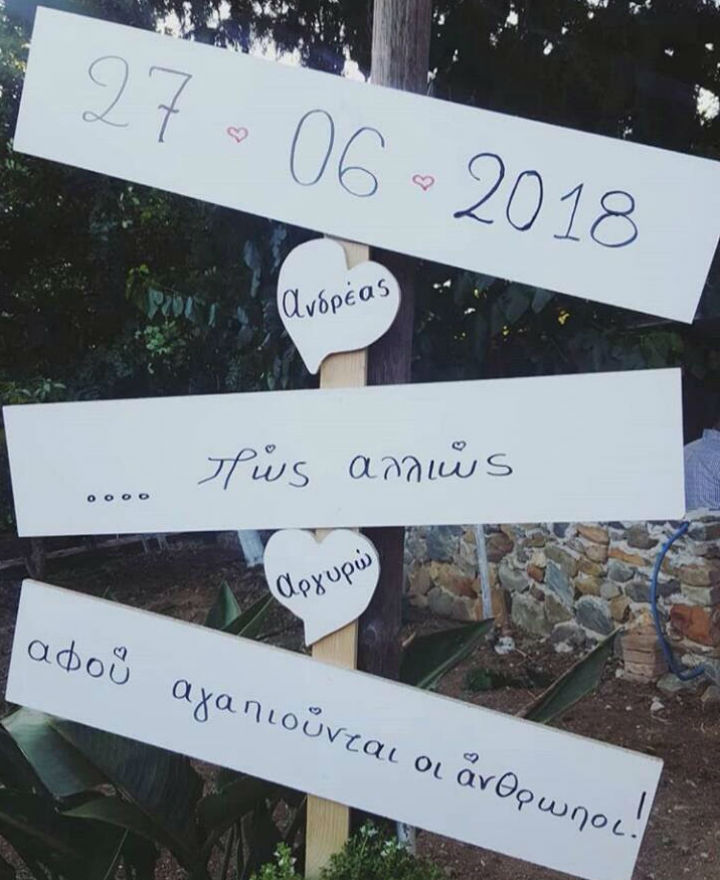 27 ♡ 06 ♡ 2018
Ανδρέας
.... πώς αλλιώς
Αργυρώ
αφού αγαπιούνται οι άνθρωποι!